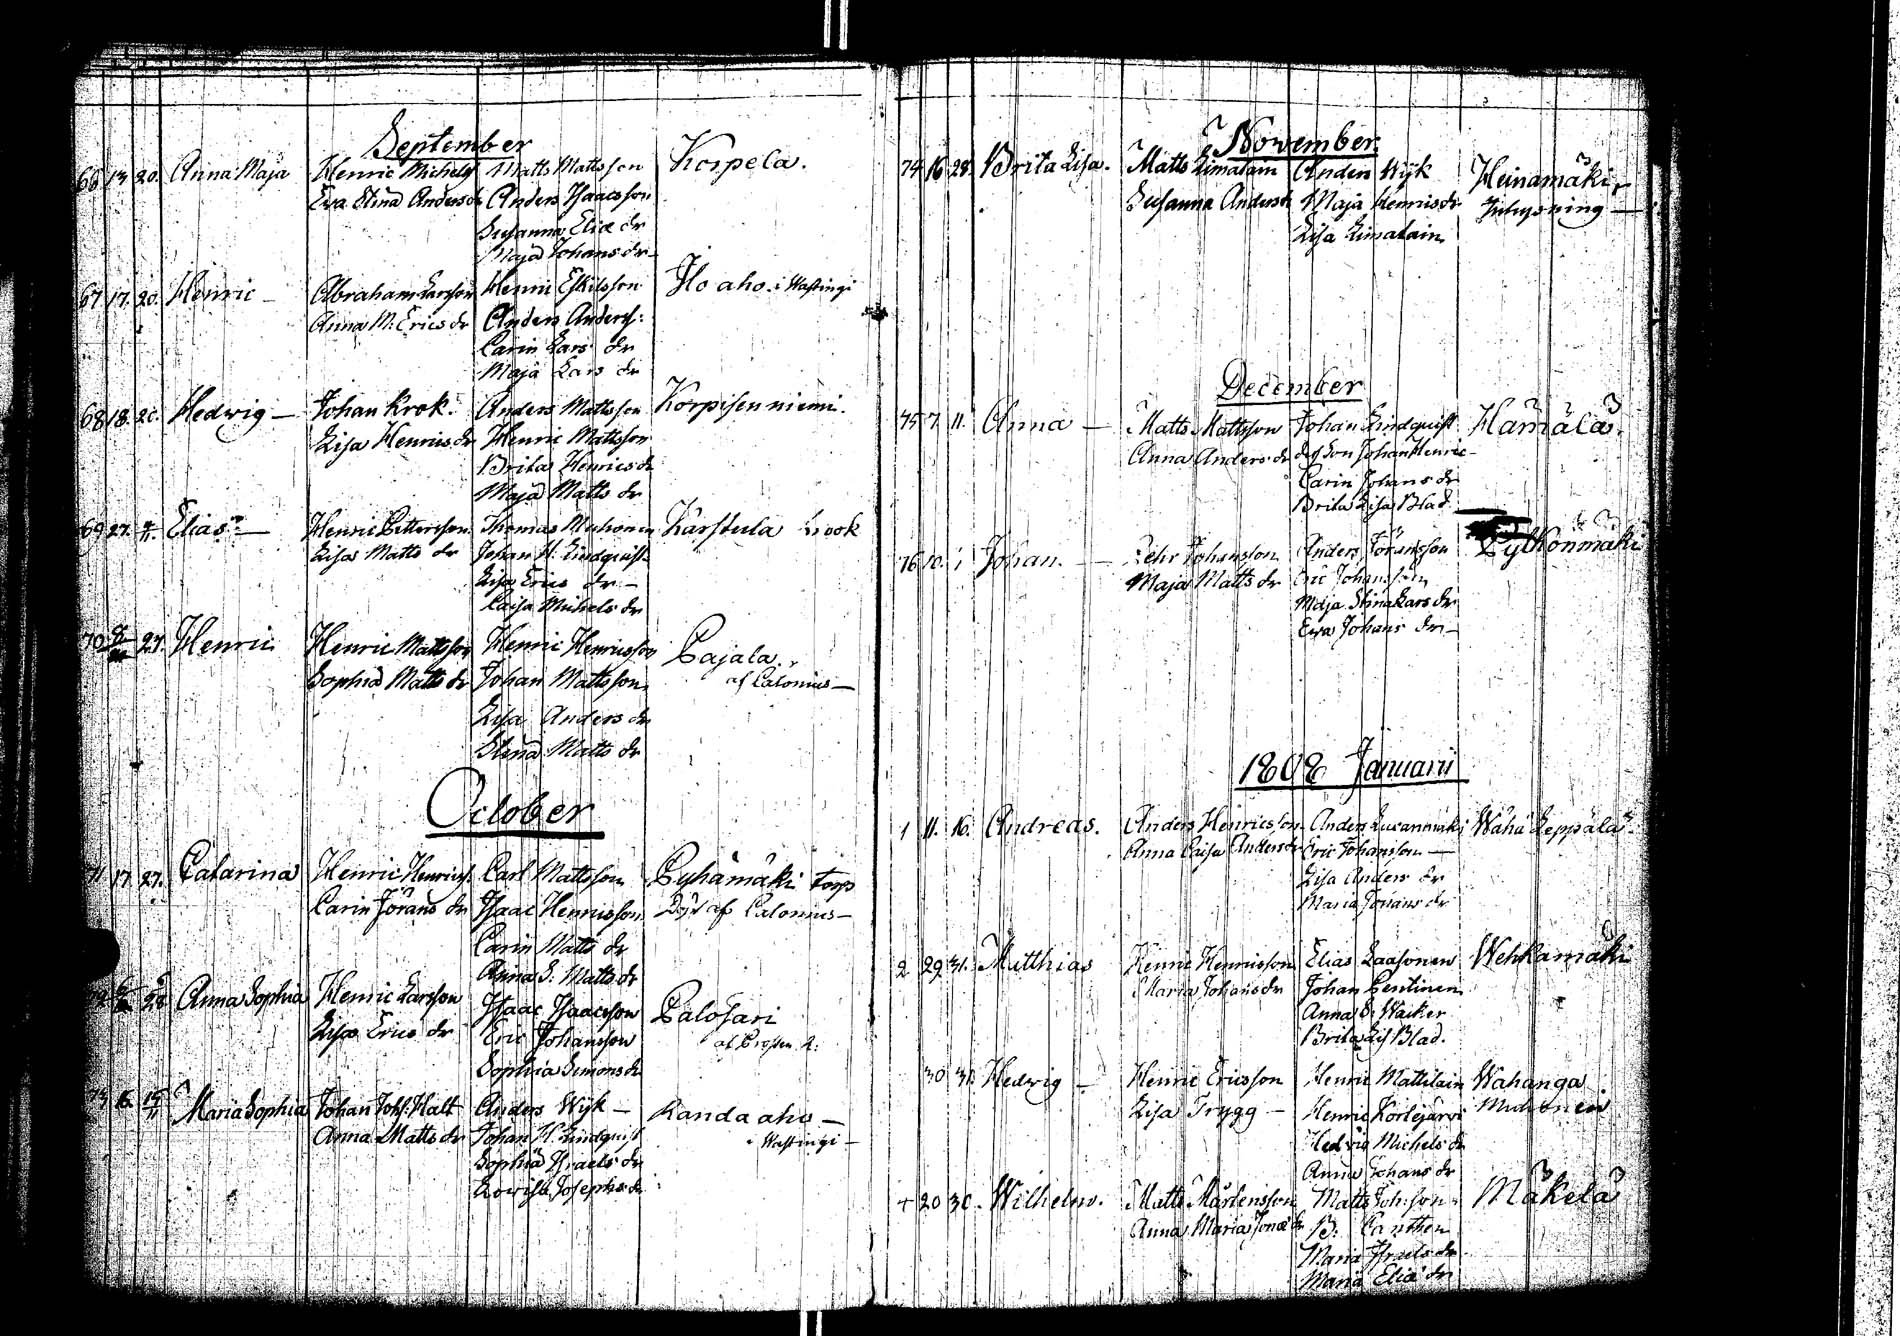 September
66 13 20. Anna Maja Henric Michelss Matts Mattsson Korpela.
Eva Stina Anders dr Anders Isaacsson
Susanna Eliæ dr
Maja Johans dr
67 17. 20. Henric Abraham Larsson Henric Eskilsson Ilo aho. i Wastingi
Anna M: Erics dr Anders Anderss:
Carin Lars dr
Maja Lars dr
68 18. 20. Hedwig — Johan Krok. Anders Mattsson Korpisenniemi.
Lisa Henrics dr Henric Mattsson
Brita Henrics dr
Maja Matts dr
69 27. Elias — Henric Pettersson Thomas Muhonen Karstula Krook
Lisa Matts dr Johan H. Lindquist
Lisa Erics dr —
Caisa Michels dr
70 27. Henric Henric Mattsson Henric Henricsson Pajala.
Sophia Matts dr Johan Mattsson af Calonius —
Lisa Anders dr
Stina Matts dr
October
71 17. 27. Catarina Henric Henricss. Carl Mattsson Pyhämäki torp
Carin Jörans dr Isaac Henricsson af Calonius —
Carin Matts dr
Anna S. Matts dr
28 Anna Sophia Henric Larsson Isaac Isaacsson Palosari
Lisa Erics dr Eric Johansson
Sophia Simons dr
73 16. 15/11 Maria Sophia Johan Johss. Halt Anders Wijk — Randa aho —
Anna Matts dr Johan H. Lindquist i Wastingi —
Sophia Israels dr
Lowisa Josephs dr
November.
74 16 28. Brita Lisa. Matts Limatain Anders Wijk Heinämäki,
Susanna Anders dr Maja Henrics dr
Lisa Limatain
December
75 7. 11. Anna — Matts Mattsson Johan Lindquist Hämälä.
Anna Anders dr Son Johan Henric —
Carin Johans dr
Brita Lisa Blad
76 10. Johan. — Pehr Johansson Anders Jöransson Pylkönmäki
Maja Matts dr Eric Johansson
Maja Stina Lars dr
Eva Johans dr —
1808 Januarii
1 11. 16. Andreas. Anders Henricsson Anders Lucanmäki Wähä Leppälä.
Anna Caisa Anders dr Eric Johansson —
Lisa Anders dr
Maria Jörans dr
2 29 31. Matthias Henric Henricsson Elias Laasonen Wehkamäki
Maria Johans dr Johan Pentinen
Anna S. Waiker
Brita Lis Blad.
30 31. Hedwig — Henric Ericsson Henric Mattilain Wahanga
Lisa Trygg — Henric Kortejärvi Muhonein
Hedvig Michels dr
Anna Johans dr
+ 20 30. Wilhelm. Matts Mårtensson Matts Johsson. Mäkelä
Anna Maria Jonæ dr B. Canthen
Maria Israels dr
Maria Eliæ dr